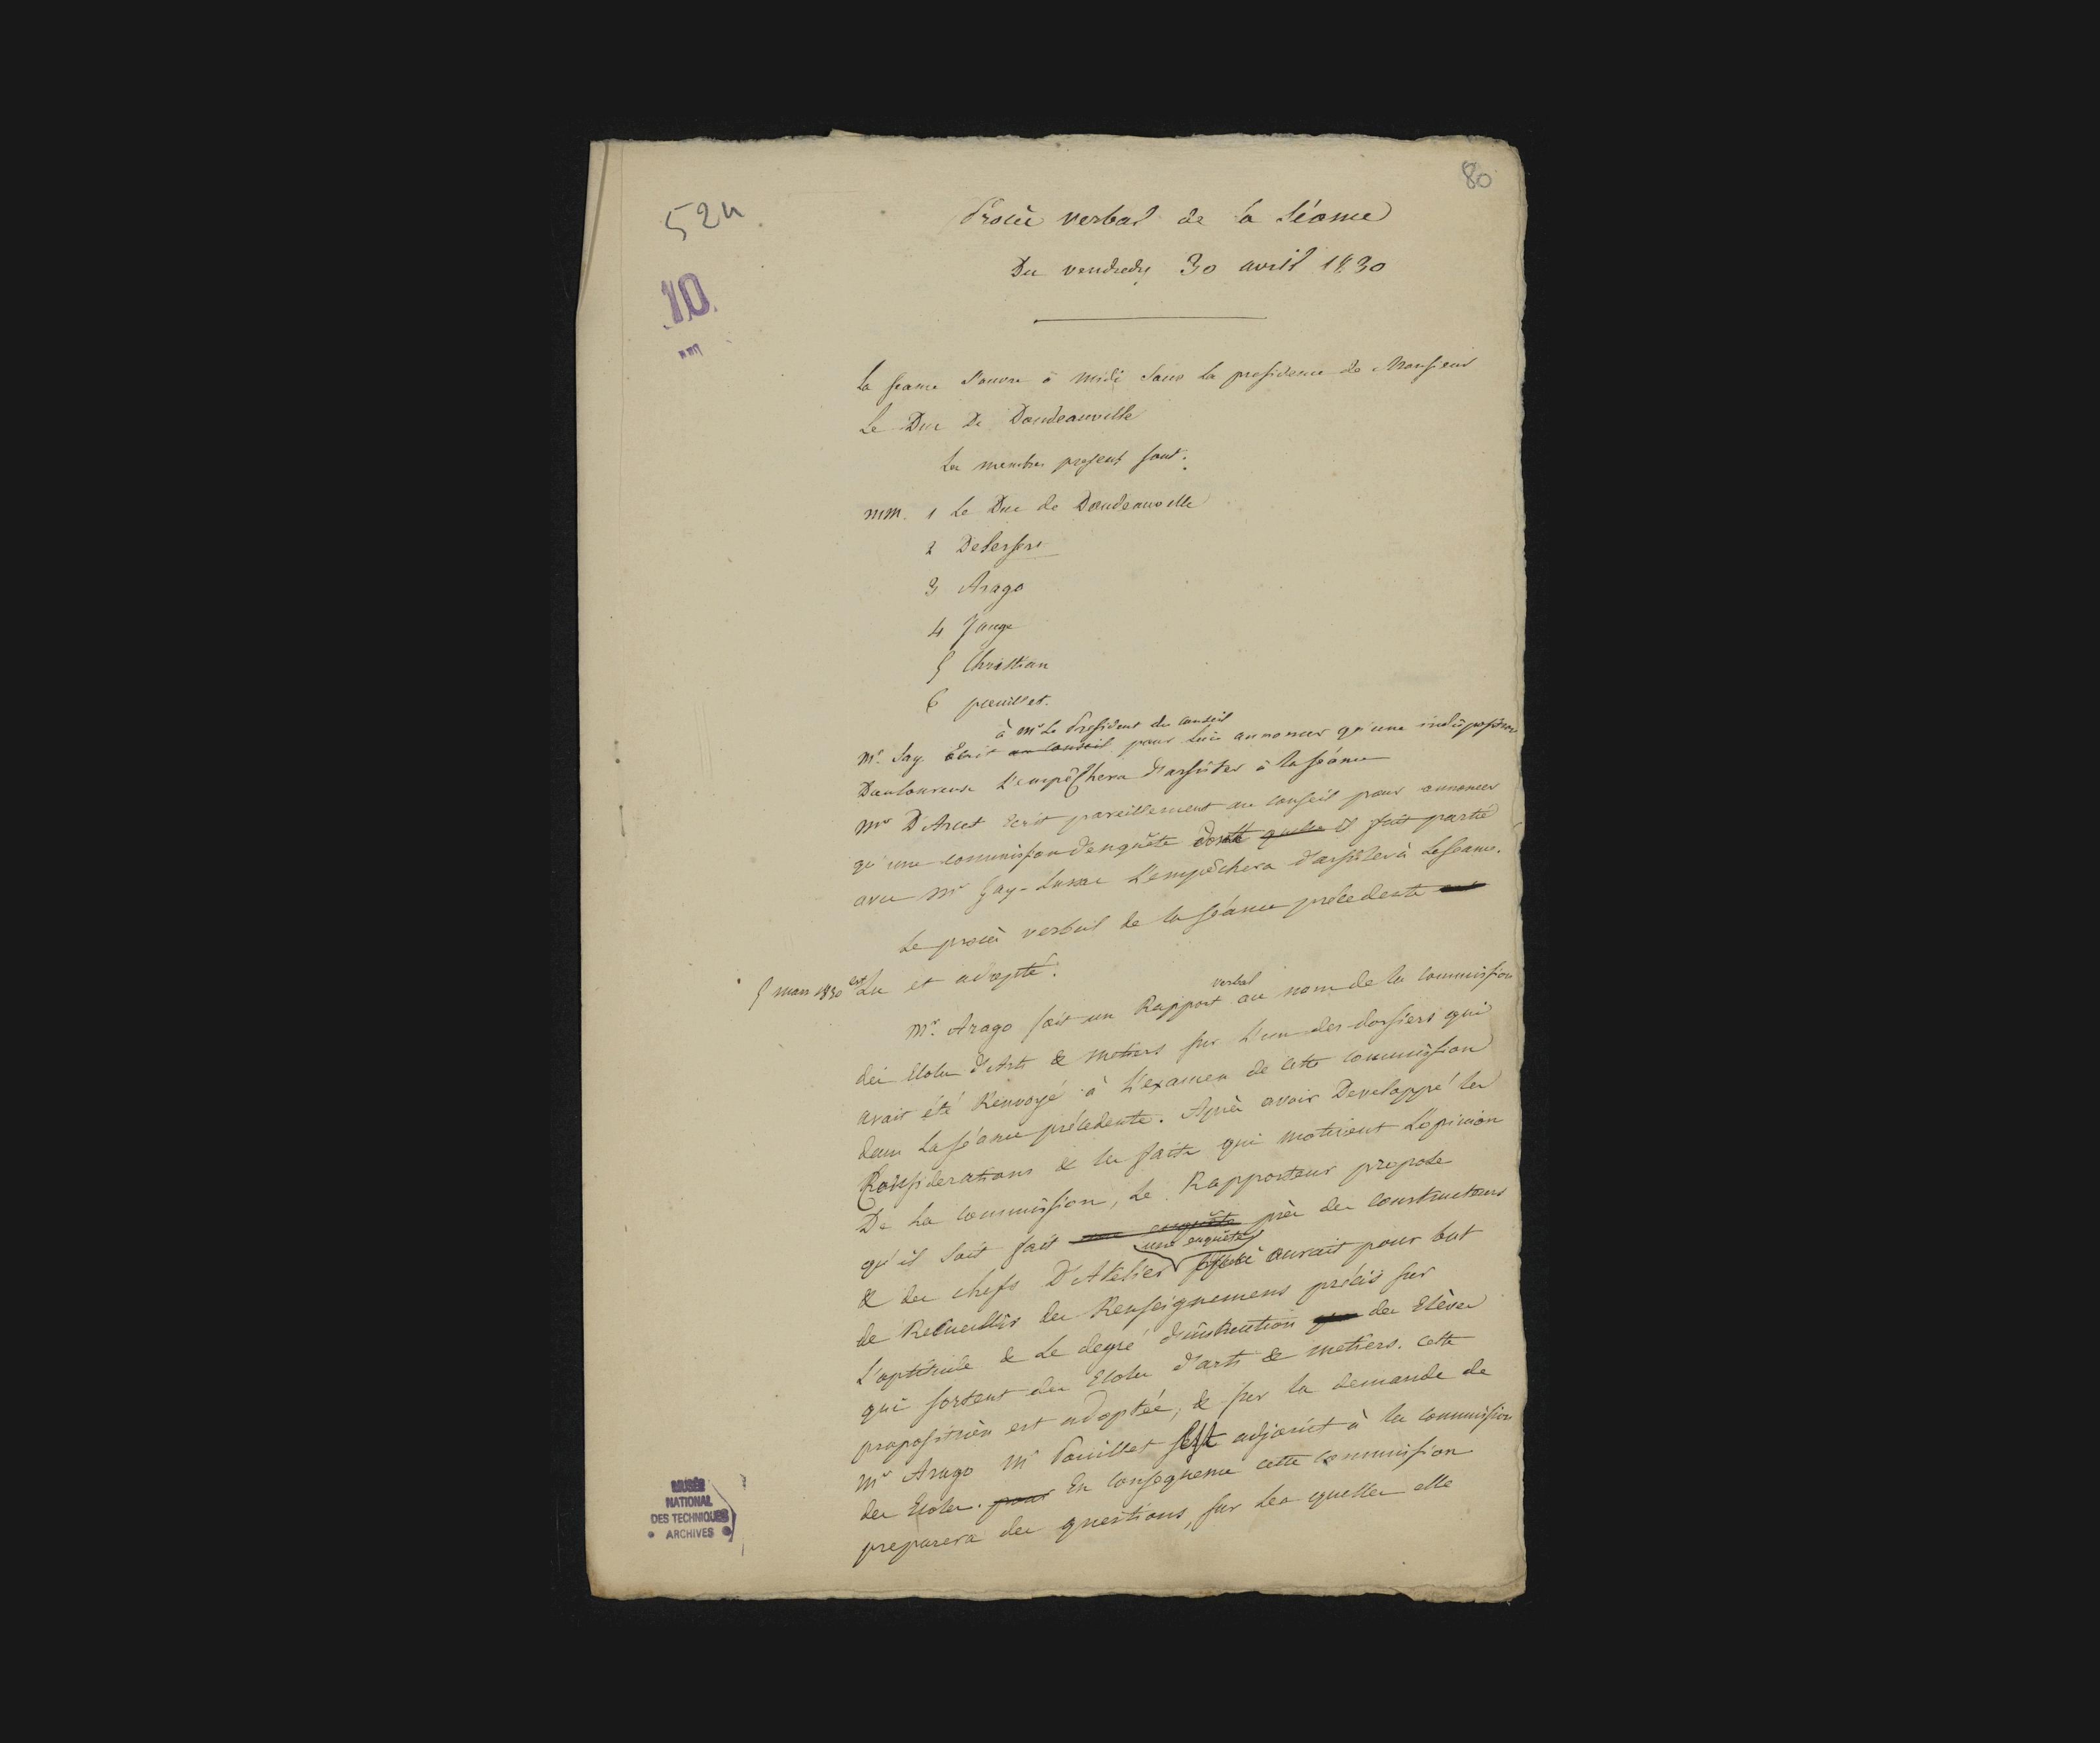 80
52u
10
Procès verbal de la séance
Du vendredy 30 avril 1830
La seance s'ouvre à midi sous la presidence de Monsieur
Le Duc De Doudeauville
Les membres presents sont:
MM. 1 Le Duc de Doudeauville
2 Delessert
3 Arago
4 Jauge
5 Christian
6 pouillet.
à Mr Le President du conseil
Mr. Say Ecrit au conseil pour lui annoncer qu'une indisposition
Douloureuse L'empêchera d'assister à la séance
Mr D'Arcet écrit pareillement au conseil pour annoncer
qu'une commission d'enquête dont il fait partie
avec Mr Gay-Lussac L'empêchera d'assister à la seance.
Le procès verbal de la séance précedente
5 mars 1830 est Lu et adopté.
verbal
Mr. Arago fait un Rapport au nom de la commission
des Ecoles d'Arts & metiers sur L'un des dossiers qui
avait été Renvoyé à L'examen de cette commission
dans La séance précedente. Après avoir Developpé les
Considerations & les faits qui motivent L'opinion
De La commission, Le Rapporteur propose
qu'il soit fait une enquête près des constructeurs
une enquête
& des chefs D'Atelier qui aurait pour but
de Recueillir des Renseignemens précis sur
L'aptitude & Le degré d'instruction des Elèves
qui sortent des Ecoles d'arts & metiers. cette
proposition est adoptée, & sur la demande de
Mr Arago Mr Pouillet est adjoint à la commission
des Ecoles. pour En consequence cette commission
preparera des questions, sur Les quelles elle
MUSÉE
NATIONAL
DES TECHNIQUES
ARCHIVES